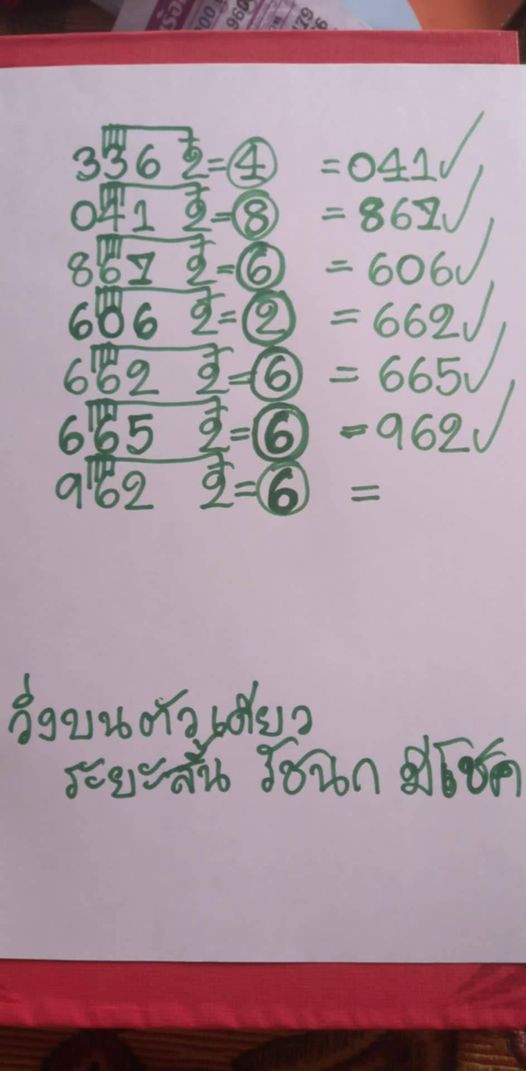 336 2=4 =041✓
041 2=8 =867✓
867 2=6 =606✓
606 2=2 =662✓
662 2=6 =665✓
665 2=6 =962✓
962 2=6 =
วิ่งบนตัวเดียว
ระยะสั้น รัชนก มีโชค